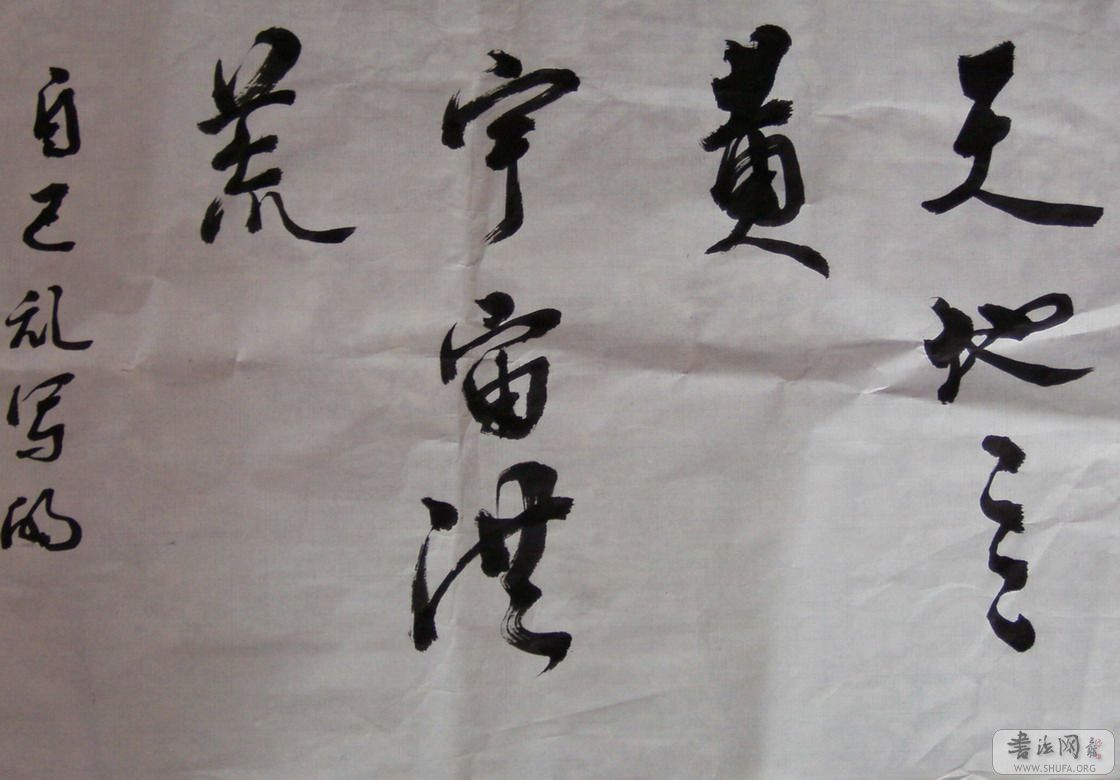 天地玄
黄
宇宙洪
荒
自己乱写的
书法网
WWW.SHUFA.ORG